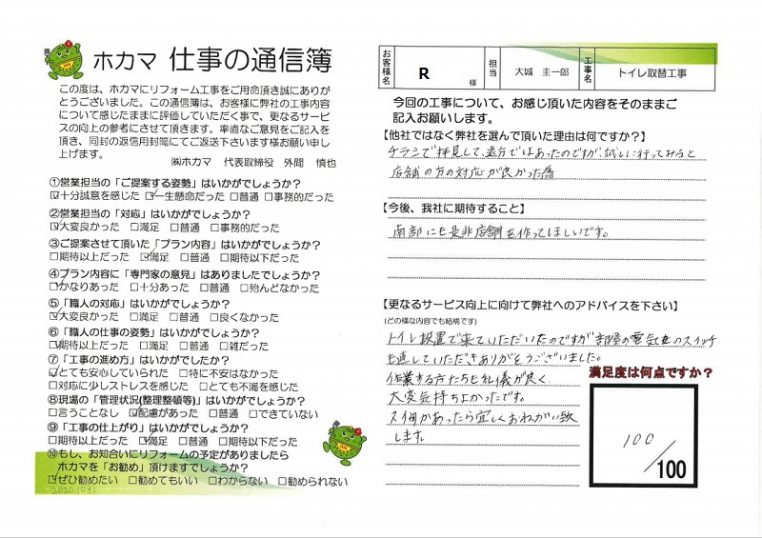 ホカマ 仕事の通信簿
この度は、ホカマにリフォーム工事をご用命頂き誠にありが
とうございました。この通信簿は、お客様に弊社の工事内容
について感じたままに評価していただく事で、更なるサービ
スの向上の参考にさせて頂きます。率直なご意見をご記入を
頂き、同封の返信用封筒にてご返送下さいます様お願い申し
上げます。
㈱ホカマ 代表取締役 外間 慎也
①営業担当の「ご提案する姿勢」はいかがでしょうか?
☑十分誠意を感じた ☑一生懸命だった □普通 □事務的だった
②営業担当の「対応」はいかがでしょうか?
☑大変良かった □満足 □普通 □事務的だった
③ご提案させて頂いた「プラン内容」はいかがでしょうか?
□期待以上だった ☑満足 □普通 □期待以下だった
④プラン内容に「専門家の意見」はありましたでしょうか?
☑かなりあった □十分あった □普通 □殆んどなかった
⑤「職人の対応」はいかがでしょうか?
☑大変良かった □満足 □普通 □良くなかった
⑥「職人の仕事の姿勢」はいかがでしょうか?
☑期待以上だった □満足 □普通 □雑だった
⑦「工事の進め方」はいかがでしたか?
☑とても安心していられた □特に不安はなかった
□対応に少しストレスを感じた □とても不満を感じた
⑧現場の「管理状況(整理整頓等)」はいかがでしょうか?
□言うことなし ☑配慮があった □普通 □できていない
⑨「工事の仕上がり」はいかがでしょうか?
□期待以上だった ☑満足 □普通 □期待以下だった
⑩もし、お知合いにリフォームの予定がありましたら
ホカマを「お勧め」頂けますでしょうか?
☑ぜひ勧めたい □勧めてもいい □わからない □勧められない
お客様名 R 様 担当 大城 圭一郎 工事名 トイレ取替工事
今回の工事について、お感じ頂いた内容をそのままご
記入お願いします。
【他社ではなく弊社を選んで頂いた理由は何ですか?】
チラシで拝見して、遠方ではあったのですが、試しに行ってみると
店舗の方の対応が良かった為
【今後、我社に期待すること】
南部にも是非店舗を作ってほしいです。
【更なるサービス向上に向けて弊社へのアドバイスを下さい】
(どの様な内容でも結構です)
トイレ設置で来ていただいたのですが部屋の電気のスイッチ
も直していただきありがとうございました。
作業する方たちも礼儀が良く、
大変気持ちよかったです。
又何かあったら宜しくおねがい致
します。
満足度は何点ですか?
100
/100